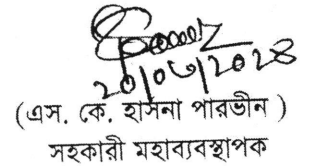 ২০/০৩/২০২৪
(এস. কে. হাসনা পারভীন )
সহকারী মহাব্যবস্থাপক